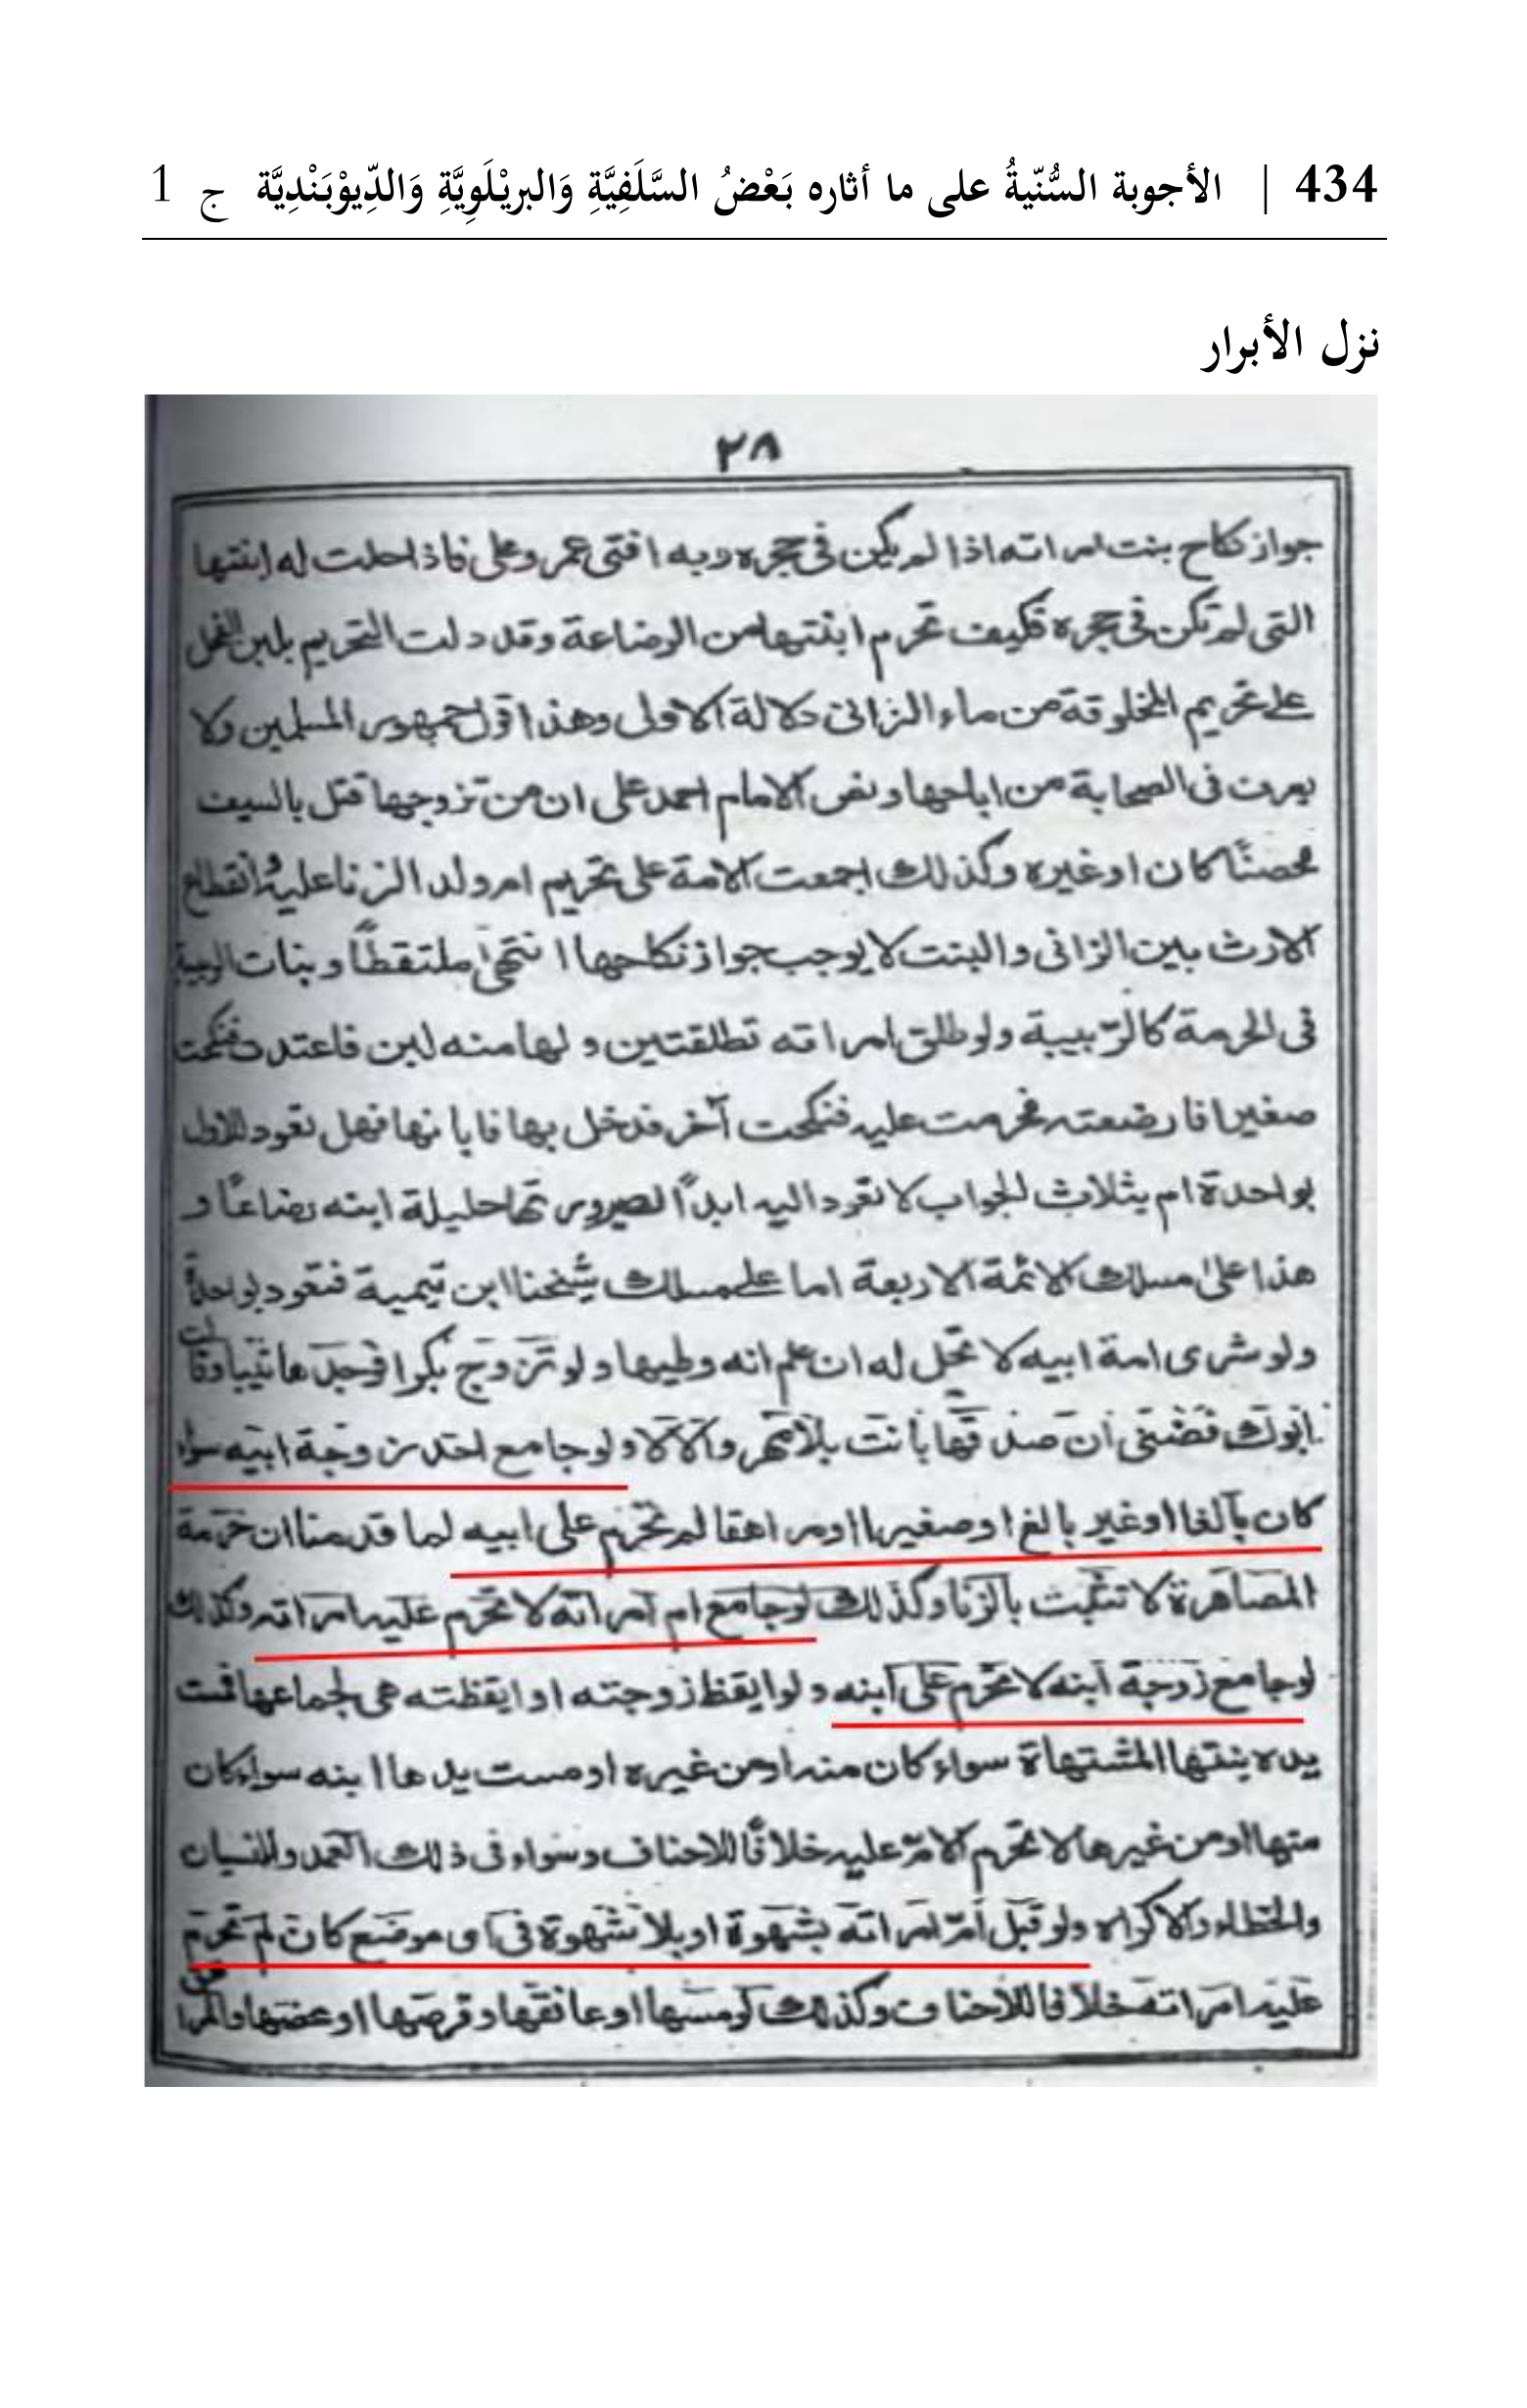 434 | الأجوبة السُّنّيةُ على ما أثاره بَعْضُ السَّلَفِيَّةِ وَالبريْلَوِيَّةِ وَالدِّيوْبَنْدِيَّة ج 1
نزل الأبرار
٢٨
جواز نكاح بنت امراته اذا لم يكن فى حجره وبه افتى عمر وعلى فاذا حلت له ابنتها
التى لم تكن فى حجره فكيف تحرم ابنتها من الرضاعة وقد دلت التحريم بلبن الفحل
على تحريم المخلوقة من ماء الزانى دلالة الاولى وهذا قول جمهور المسلمين ولا
يعرف فى الصحابة من اباحها ونص الامام احمد على ان من تزوجها قتل بالسيف
محصنًا كان او غيره وكذلك اجمعت الامة على تحريم ام ولد الزنا عليه وانقطاع
الارث بين الزانى والبنت لا يوجب جواز نكاحها انتهى ملتقطًا وبنات الربيبة
فى الحرمة كالربيبة ولو طلق امراته تطلقتين ولها منه لبن فاعتدت فنكحت
صغيرا فارضعته فحرمت عليه فنكحت آخر فدخل بها فابانها فهل تعود للاول
بواحدة ام بثلاث الجواب لا تعود اليه ابدًا لصيرورتها حليلة ابنه رضاعًا و
هذا على مسلك الائمة الاربعة اما على مسلك شيخنا ابن تيمية فتعود بواحدة
ولو شرى امة ابيه لا تحل له ان علم انه وطيها ولو تزوج بكرا فوجدها ثيبا وقالت
ابوك فضنى ان صدقها بانت بلا مهر والا لا ولو جامع احد زوجة ابيه سواء
كان بالغا او غير بالغ او صغيرا او مراهقا لم تحرم على ابيه لما قدمنا ان حرمة
المصاهرة لا تثبت بالزنا وكذلك لو جامع ام امراته لا تحرم عليه امراته وكذلك
لو جامع زوجة ابنه لا تحرم على ابنه ولو ايقظ زوجته او ايقظته هى لجماعها فمست
يده بنتها المشتهاة سواء كان منه او من غيره او مست يدها ابنه سواء كان
منها او من غيرها لا تحرم الام عليه خلافًا للاحناف وسواء فى ذلك العمد والنسيان
والخطاء والاكراه ولو قبل ام امراته بشهوة او بلا شهوة فى اى موضع كان لم تحرم
عليه امراته خلافا للاحناف وكذلك لو مسها او عانقها وقرصها او عضها